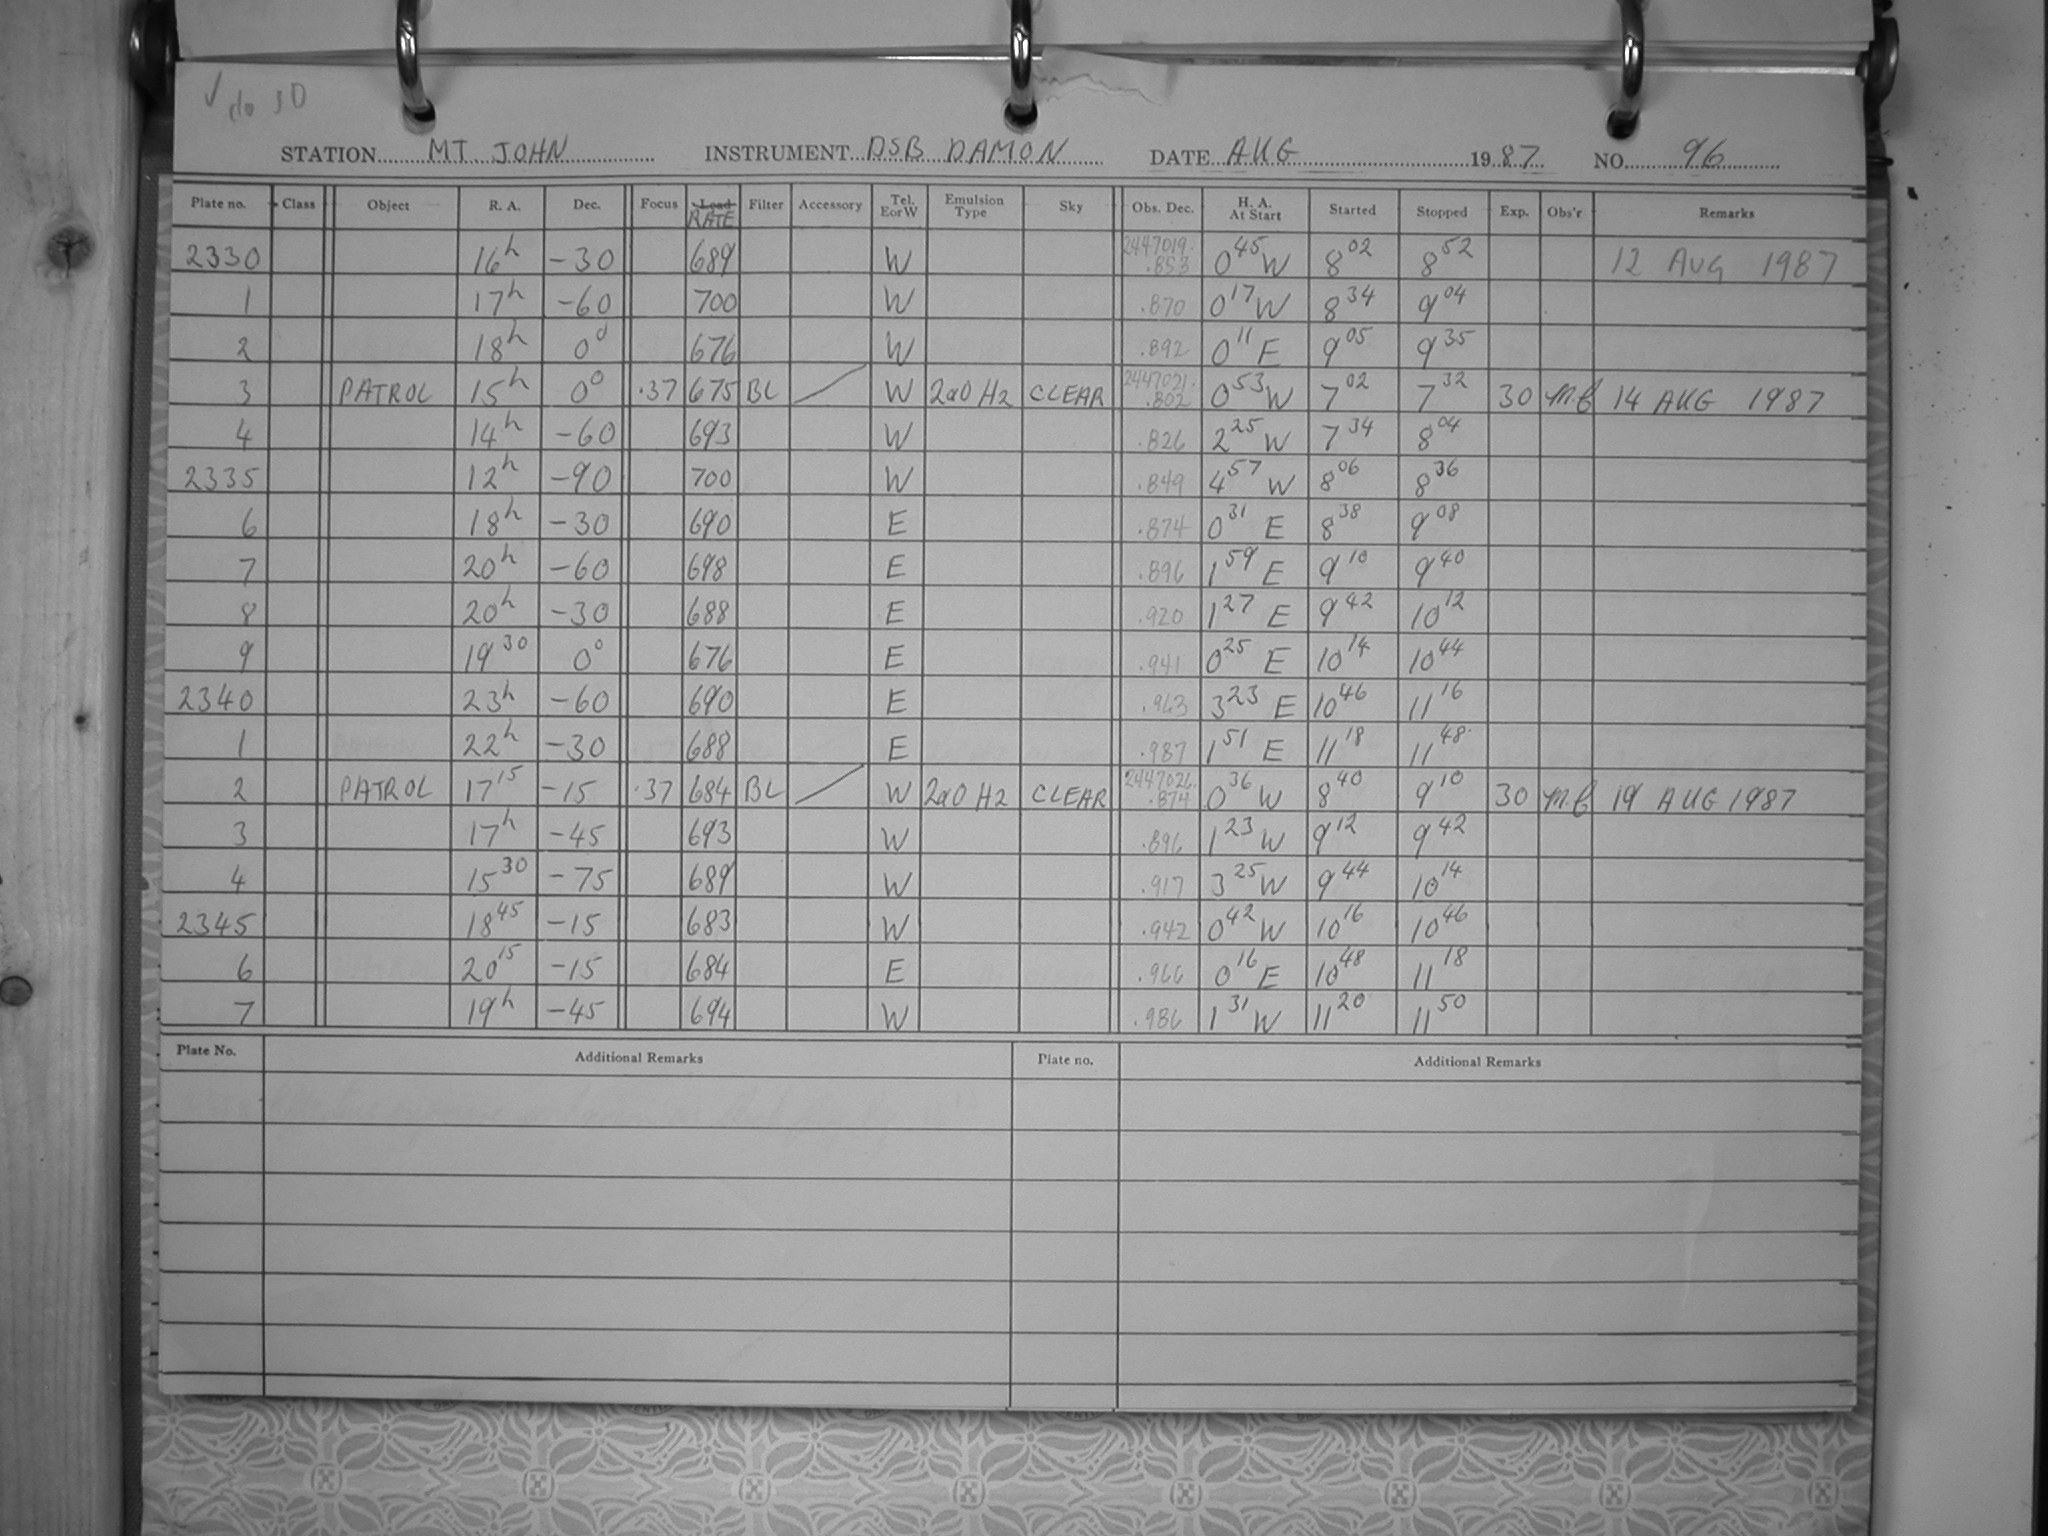 ✓ do JD
STATION MT JOHN INSTRUMENT DSB DAMON DATE AUG 1987 NO 96
Plate no. Class Object R. A. Dec. Focus Load RATE Filter Accessory Tel. E or W Emulsion Type Sky Obs. Dec. H. A. At Start Started Stopped Exp. Obs'r Remarks
2330 16h -30 689 W 2447019. .853 0 45 W 8 02 8 52 12 AUG 1987
1 17h -60 700 W .870 0 17 W 8 34 9 04
2 18h 0d 676 W .892 0 11 E 9 05 9 35
3 PATROL 15h 0° .37 675 BL W 2aO H2 CLEAR 2447021. .802 0 53 W 7 02 7 32 30 14 AUG 1987
4 14h -60 693 W .826 2 25 W 7 34 8 04
2335 12h -90 700 W .849 4 57 W 8 06 8 36
6 18h -30 690 E .874 0 31 E 8 38 9 08
7 20h -60 698 E .896 1 59 E 9 10 9 40
8 20h -30 688 E .920 1 27 E 9 42 10 12
9 19 30 0° 676 E .941 0 25 E 10 14 10 44
2340 23h -60 690 E .963 3 23 E 10 46 11 16
1 22h -30 688 E .987 1 51 E 11 18 11 48
2 PATROL 17 15 -15 .37 684 BL W 2aO H2 CLEAR 2447026. .874 0 36 W 8 40 9 10 30 19 AUG 1987
3 17h -45 693 W .896 1 23 W 9 12 9 42
4 15 30 -75 689 W .917 3 25 W 9 44 10 14
2345 18 45 -15 683 W .942 0 42 W 10 16 10 46
6 20 15 -15 684 E .966 0 16 E 10 48 11 18
7 19h -45 694 W .986 1 31 W 11 20 11 50
Plate No. Additional Remarks Plate no. Additional Remarks